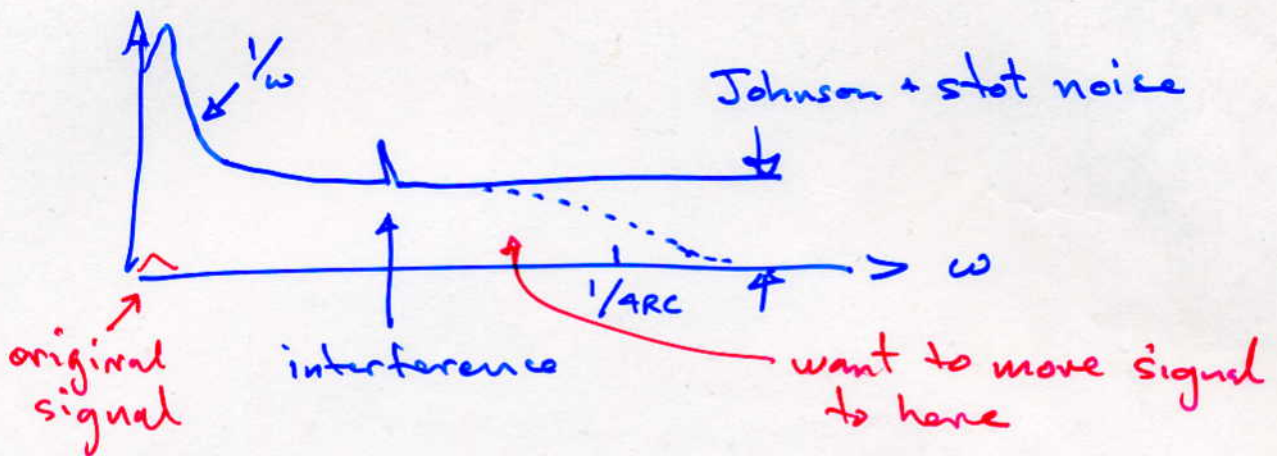 1/ω
Johnson + shot noise
> ω
1/4RC
original
signal
interference
want to move signal
to here